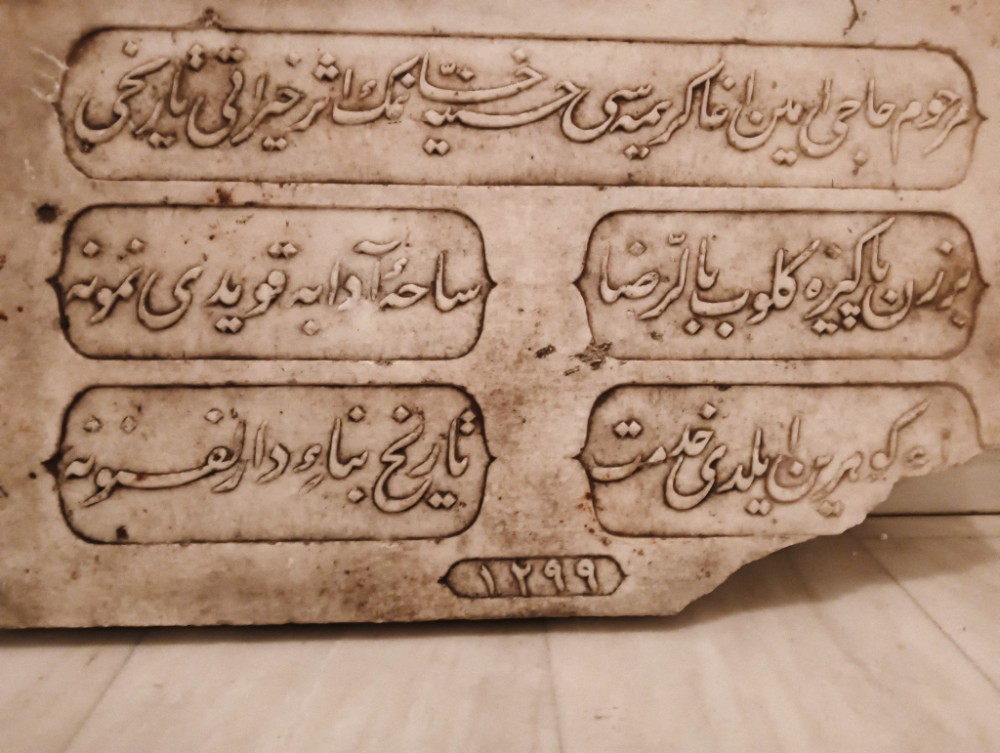 مرحوم حاجی امین اغا کریمه سی حسنیه خانمك اثر خیراتی تاریخی
بر زن پاکیزه گلوب بالرضا
ساحۀ آدابه قویدی نمونه
گوهرین ایلدی خدمت
تاریخ بناء دار لفنونه
١٢٩٩